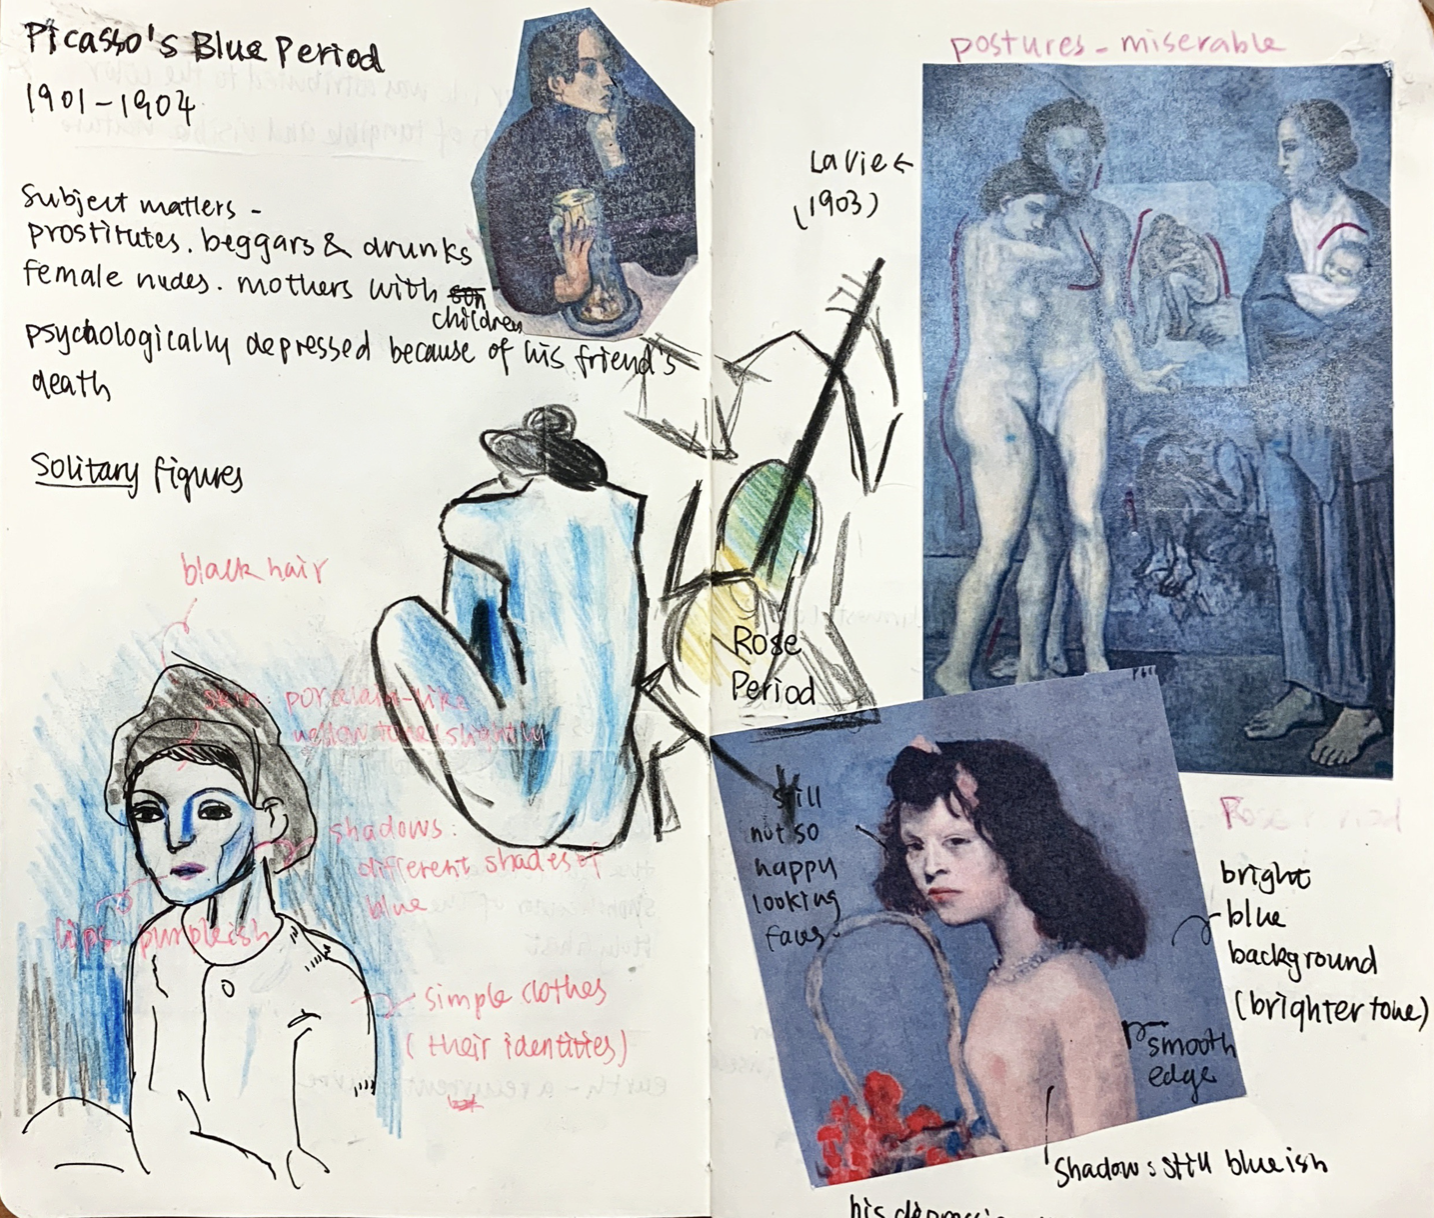 Picasso's Blue Period
1901-1904
Subject matters -
prostitutes. beggars & drunks
female nudes. mothers with son
children
psychologically depressed because of his friend's
death
Solitary figures
black hair
skin: porcelain-like
yellow toned slightly
shadows:
different shades of
blue
lips purpleish
simple clothes
(their identities)
postures - miserable
La Vie ←
(1903)
Rose
Period
still
not so
happy
looking
faces.
bright
blue
background
(brighter tone)
smooth
edge
Shadow: still blueish
his